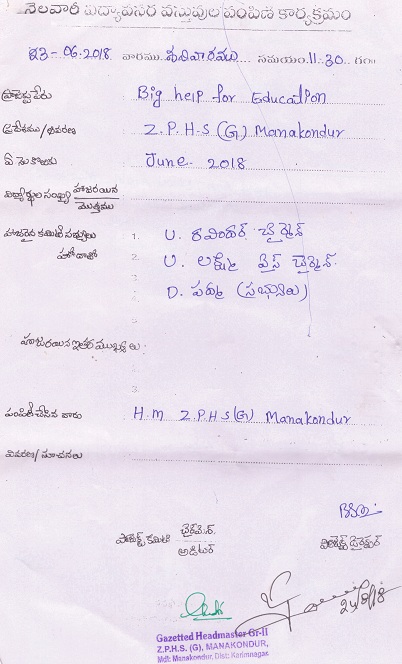 నెలవారీ విద్యావసర వస్తువుల పంపిణీ కార్యక్రమం
23-06-2018 వారము శనివారము సమయం 11.30 గం॥
ప్రాజెక్టు పేరు Big help for Education
ప్రదేశము/వివరణ Z.P.H.S (G) Manakondur
ఏ నెల కొరకు June 2018
విద్యార్థుల సంఖ్య హాజరయిన
మొత్తము
హాజరైన కమిటీ సభ్యులు 1. U. రవిందర్ చైర్మెన్
హోదాతో 2. U. లక్ష్మి వైస్ చైర్మెన్.
3. D. పద్మ (సభ్యులు)
హాజరయిన ఇతర ముఖ్యులు.
పంపిణీ చేసిన వారు H.M Z.P.H.S(G) Manakondur
వివరణ/సూచనలు
ప్రాజెక్ట్ కమిటీ చైర్మెన్
ఆడిటర్
ప్రాజెక్ట్ డైరెక్టర్
24/8/18
Gazetted Headmaster Gr-II
Z.P.H.S. (G), MANAKONDUR,
Mdl: Manakondur, Dist: Karimnagar